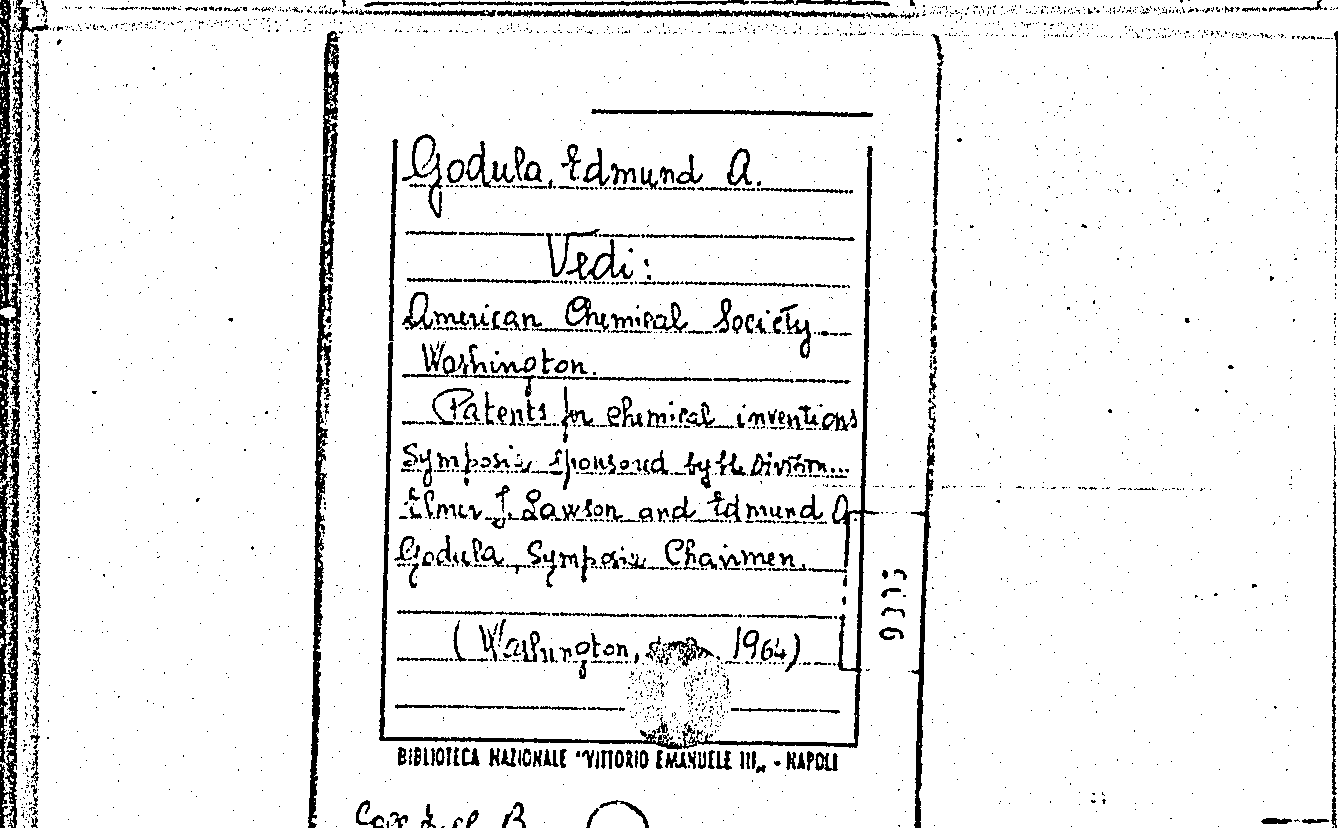 Godula, Edmund A.
Vedi:
American Chemical Society
Washington.
Patents for chemical inventions
Symposia sponsored by the Division...
Elmer J. Lawson and Edmund A.
Godula, Symposia Chairmen.
(Washington, 1964)
BIBLIOTECA NAZIONALE "VITTORIO EMANUELE III„ - NAPOLI